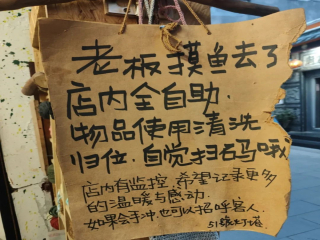 老板摸鱼去了
店内全自助.
物品使用清洗
归位.自觉扫码哦
店内有监控.希望记录更多
的温暖与感动.
如果会手冲也可以招呼客人.